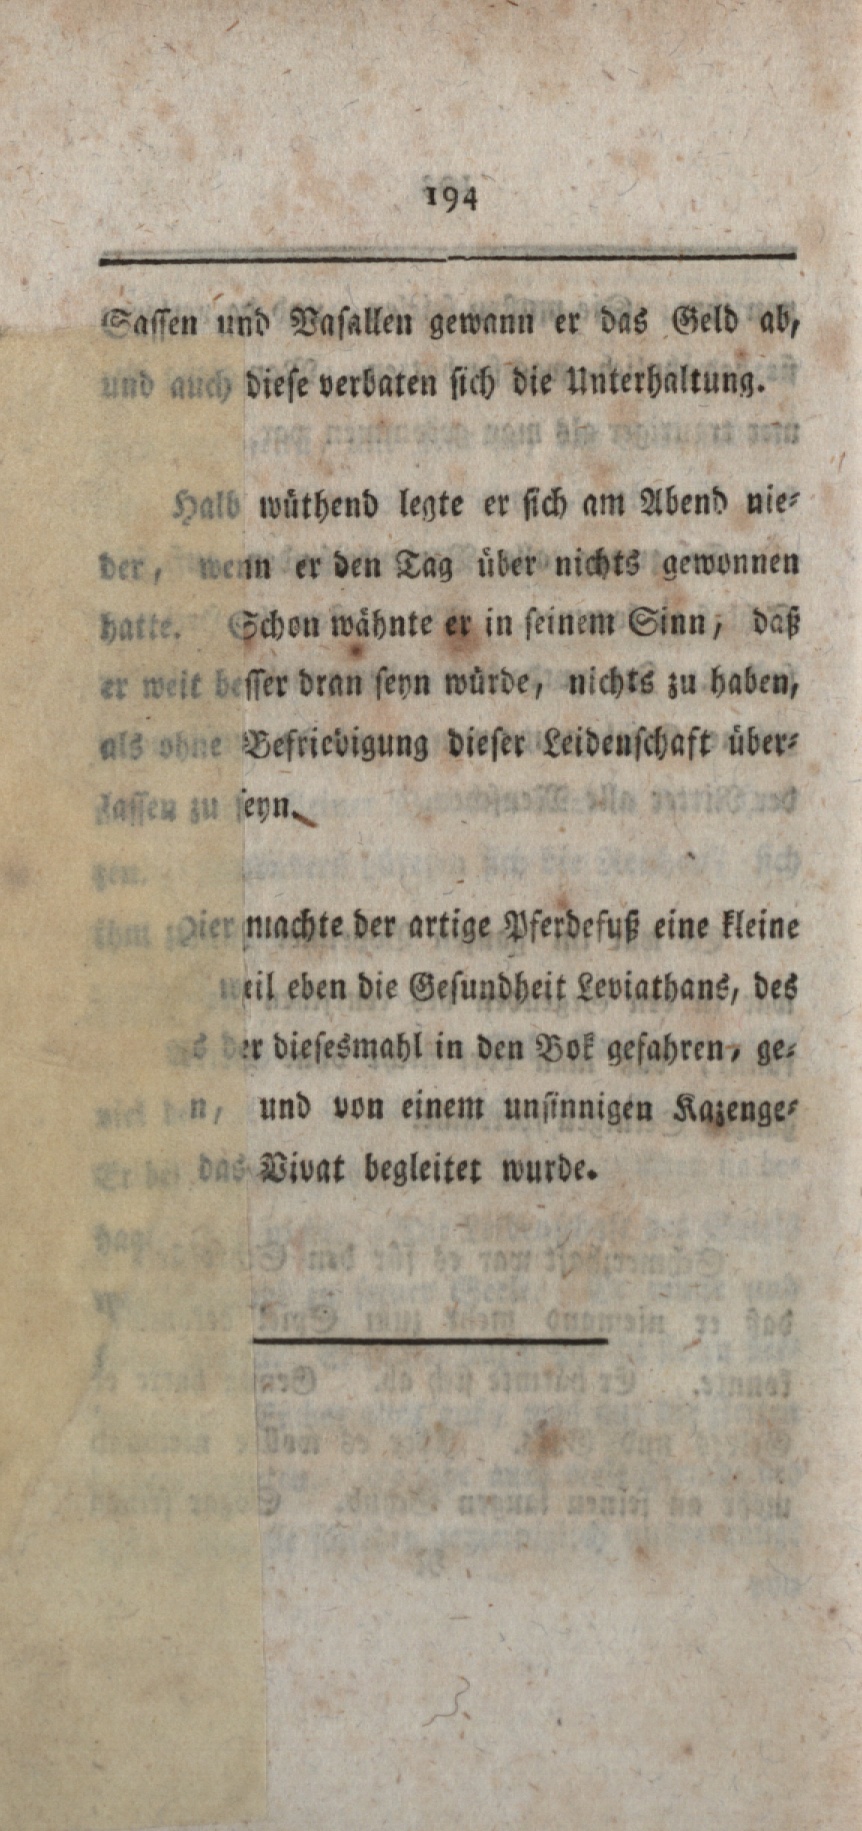 194
Sassen und Vasallen gewann er das Geld ab,
und auch diese verbaten sich die Unterhaltung.
Halb wüthend legte er sich am Abend nie⸗
der, wenn er den Tag über nichts gewonnen
hatte. Schon wähnte er in seinem Sinn, daß
er weit besser dran seyn würde, nichts zu haben,
als ohne Befriedigung dieser Leidenschaft über⸗
lassen zu seyn.
Hier machte der artige Pferdefuß eine kleine
weil eben die Gesundheit Leviathans, des
der diesesmahl in den Bok gefahren, ge⸗
und von einem unsinnigen Kazenge⸗
das Vivat begleitet wurde.